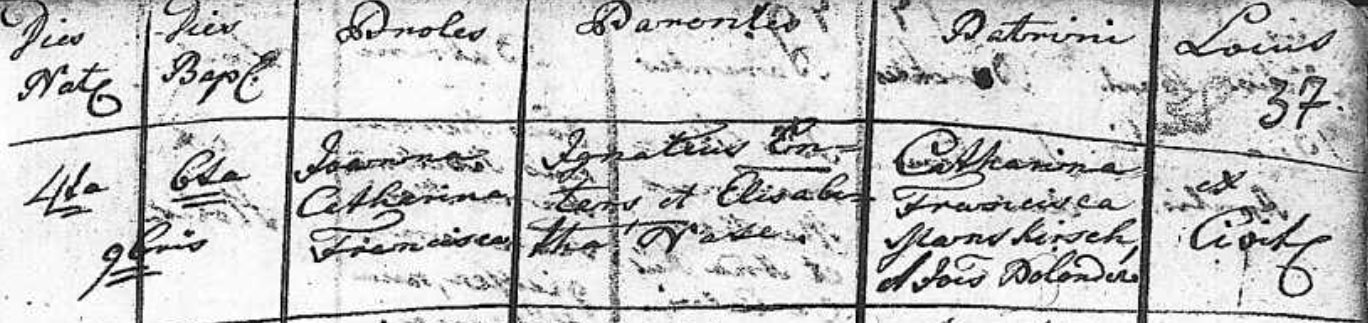 Dies Nat.
Dies Bapt.
Proles
Parentes
Patrini
Locus
37.
4ta
9bris
6ta
Joanna
Catharina
Francisca
Ignatius En-
tens et Elisabe-
tha Nase.
Catharina
Francisca
Manskirsch,
et Jois
ex
Civit